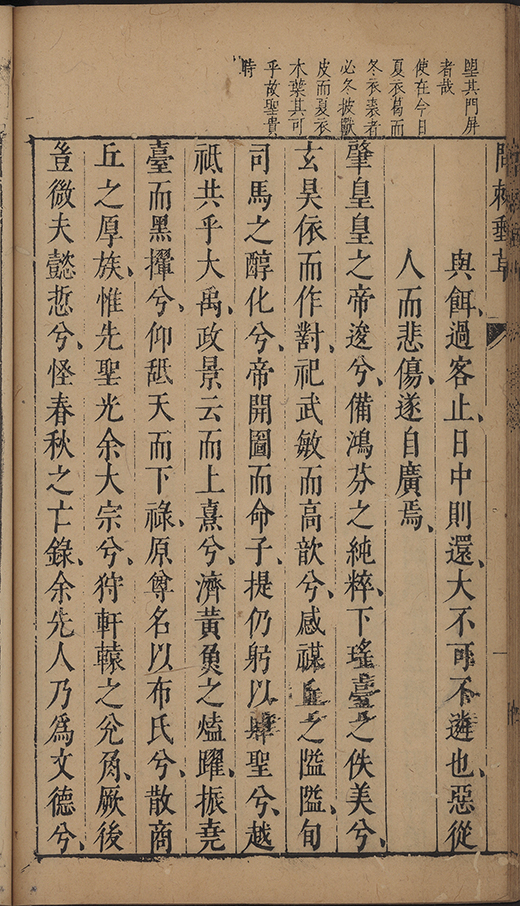 塱其門屏
者哉
使在今日
夏衣葛而
冬衣裘者
必冬披獸
皮而夏衣
木葉其可
乎故聖貴
時
與餌過客止日中則還大不可不遴也惡從
人而悲傷遂自廣焉
肇皇皇之帝逡兮備鴻芬之純粹下瑤臺之佚美兮
玄昊依而作對祀武敏而高歆兮感禖丘之隘隘旬
司馬之醇化兮帝開圖而命子提仍躬以肆聖兮越
祇共乎大禹政景云而上熹兮濟黃魚之熆躍振堯
臺而黑擢兮仰舐天而下祿原尊名以布氏兮散商
丘之厚族惟先聖光余大宗兮狩軒轅之兊角厥後
豈微夫懿悊兮怪春秋之亡錄余先人乃爲文德兮